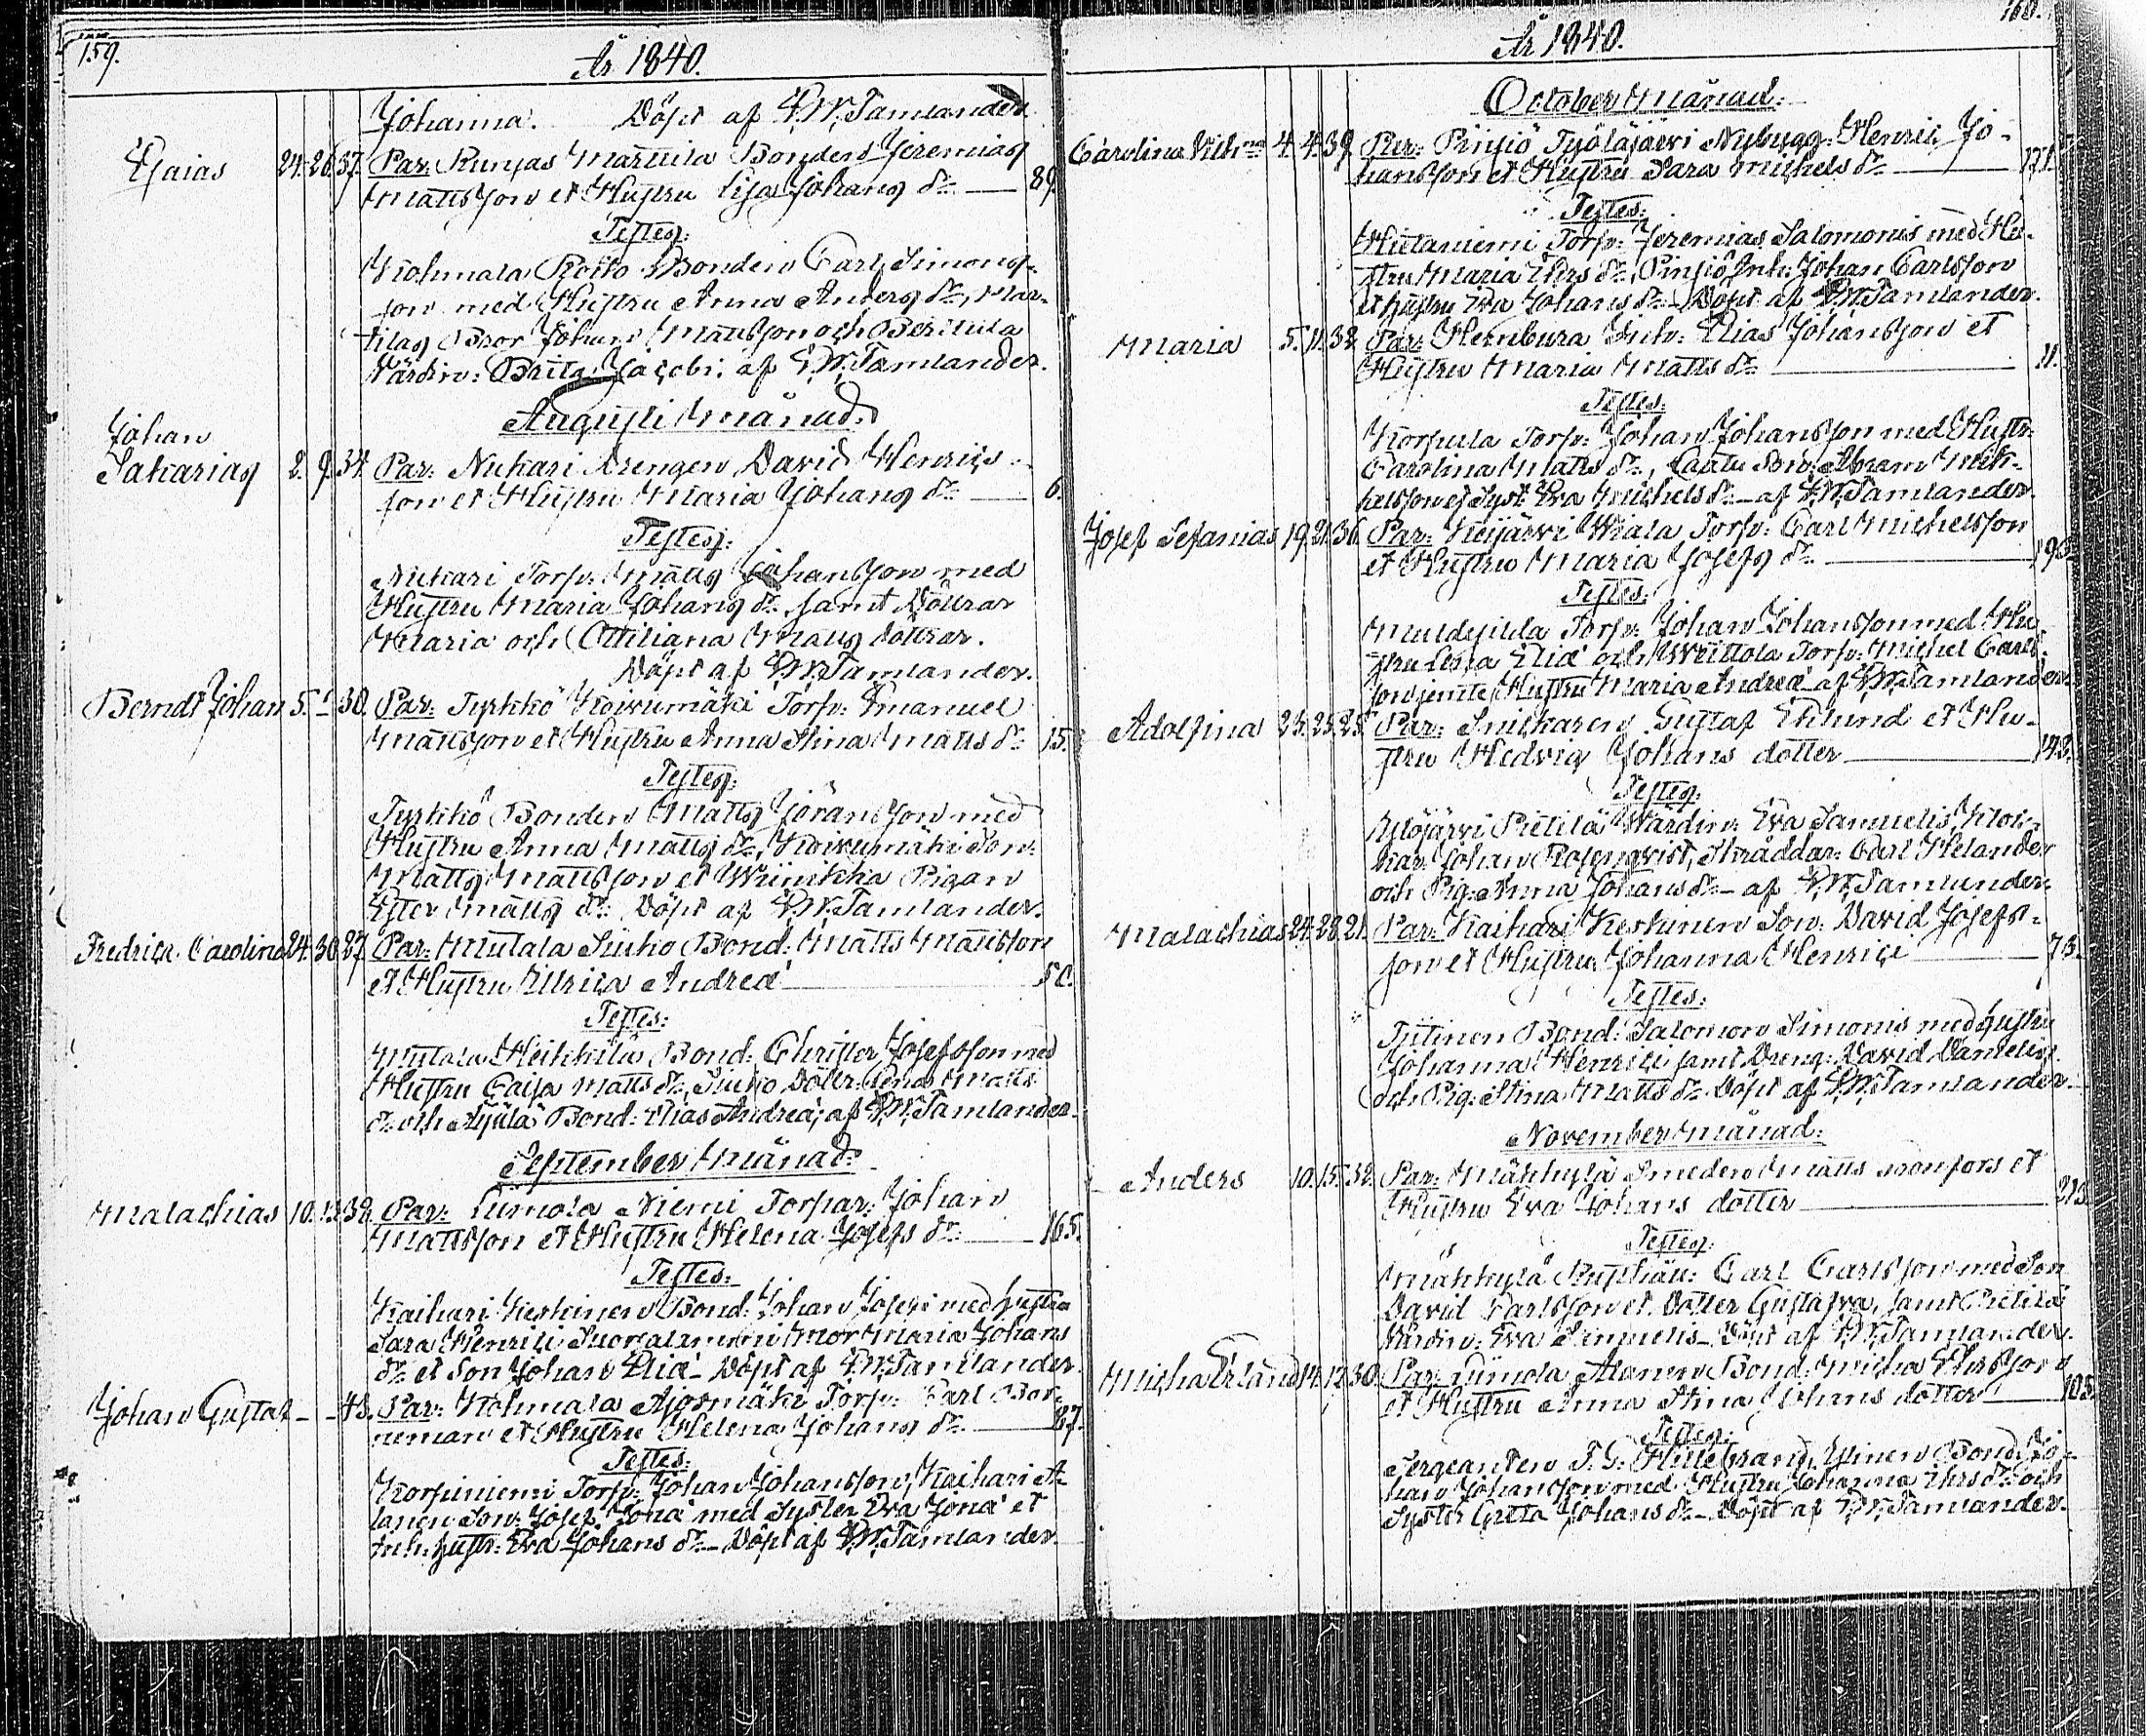 159.
År 1840.
Johanna. Döpt af P.W. Tamlander.
Esaias 24. 26. 37. Par: Runsas Marttila Bonden Jeremias
Mattsson et Hustru Lisa Johans dr. 89.
Testes:
Kohmala Rosko Bonden Carl Simons-
son med Hustru Anna Anders dr., Mar-
tilas Bror Johan Mattsson och Perttula
Värdin: Brita Jacobi. af P.W. Tamlander.
Augusti Månad.
Johan
Sakarias 2. 9. 34. Par: Nuckari Drengen David Henrics-
son et Hustru Maria Johans dr. 6.
Testes:
Nuckari Torp: Matts Johansson med
Hustru Maria Johans dr. samt Döttrar
Maria och Ottiliana Matts döttrar.
Döpt af P.W. Tamlander.
Berndt Johan 5. 30. Par: Tyrkkö Koivumäki Torp: Emanuel
Mattsson et Hustru Anna Stina Matts dr. 15.
Testes:
Tyrkkö Bonden Matts Göransson med
Hustru Anna Matts dr., Koivumäki Son:
Matts Mattsson et Wiinikka Pigan
Ester Matts dr. Döpt af P.W. Tamlander.
Fredrica Carolina 24. 30. 27. Par: Mutala Siuko Bond: Matts Mattsson
et Hustru Ulrica Andreæ 50.
Testes:
Mutala Heikkilä Bond: Christer Josefsson med
Hustru Caisa Matts dr., Siuko Dottr. Lena Matts
dr. och Äijälä Bond: Elias Andreæ, af P.W. Tamlander.
September Månad:
Malachias 10. 13. 32. Par: Limola Niemi Torpar: Johan
Mattsson et Hustru Helena Josefs dr. 165.
Testes:
Kaihari Keskinen Bond: Johan Josefi med hustru
Sara Henrici, Mor Maria Johans
dr. et Son Johan Eliæ. Döpt af P.W. Tamlander.
Johan Gustaf - - 43. Par: Kohmala Ajosmäki Torp: Carl Bor-
neman et Hustru Helena Johans dr. 87.
Testes:
Korpiniemi Torp: Johan Johansson, Kaihari A-
lanen Son: Josef Jonæ med Syster Eva Jonæ et
Inh: hustr: Eva Johans dr. Döpt af P.W. Tamlander.
160.
År 1840.
October Månad:
Carolina Vilh:na 4. 4. 39. Par: Pinsiö Työläjärvi Nybygg: Henric Jo-
hansson et Hustru Sara Michels dr. 171.
Testes:
Hietaniemi Torp: Jeremias Salomonis med Hu-
stru Maria Ehrs dr., Pinsiö Inh: Johan Carlsson
et hustru Eva Johans dr. Döpt af P.W. Tamlander.
Maria 5. 11. 32. Par: Hembura Inh: Elias Johansson et
Hustru Maria Matts dr. 11.
Testes:
Korpula Torp: Johan Johansson med Hustr:
Carolina Matts dr., Son: Abram Mik-
kelsson et Syst: Eva Michels dr. af P.W. Tamlander.
Josef Sefanias 19. 21. 36. Par: Keijärvi Wiala Torp: Carl Michelsson
et Hustru Maria Josefs dr. 196.
Testes:
Torp: Johan Johansson med Hu-
stru Lena Eliæ och Wiittola Torp: Michel Carls-
son jemte Hustru Maria Andreæ af P.W. Tamlander.
Adolfina 23. 25. 25. Par: Snickaren Gustaf Eklund et Hu-
stru Hedvig Johans dotter 142.
Testes:
Ylöjärvi Pietilä Wärdin: Eva Samuelis, Klok-
kar: Johan Rosenqvist, Skräddar: Carl Helander
och Pig: Anna Johans dr. af P.W. Tamlander.
Malachias 24. 28. 21. Par: Kaihari Keskinen Son: David Josefs-
son et Hustru Johanna Henrici 73.
Testes:
Tiitinen Bond: Salomon Simonis med hustru
Johanna Henrici samt Dreng: David Danielis
och Pig: Stina Matts dr. Döpt af P.W. Tamlander.
November Månad:
Anders 10. 15. 32. Par: Mäkkylä Smeden Matts et
Hustru Eva Johans dotter 213.
Testes:
Mäkkylä Rusthåll: Carl Carlsson med Son
David Carlsson et Dotter Gustafva, samt Pietilä
Värdin: Eva Samuelis. Döpt af P.W. Tamlander.
Micha Erland 14. 17. 30. Par: Limola Alanen Bond: Micha Ehrsson
et Hustru Anna Stina Johans dotter 103.
Testes:
Sergeanten T.G. Hillebrand, Ylinen Bond: Jo-
han Johansson med Hustru Johanna Ehrs dr. och
Syster Greta Johans dr. Döpt af P.W. Tamlander.